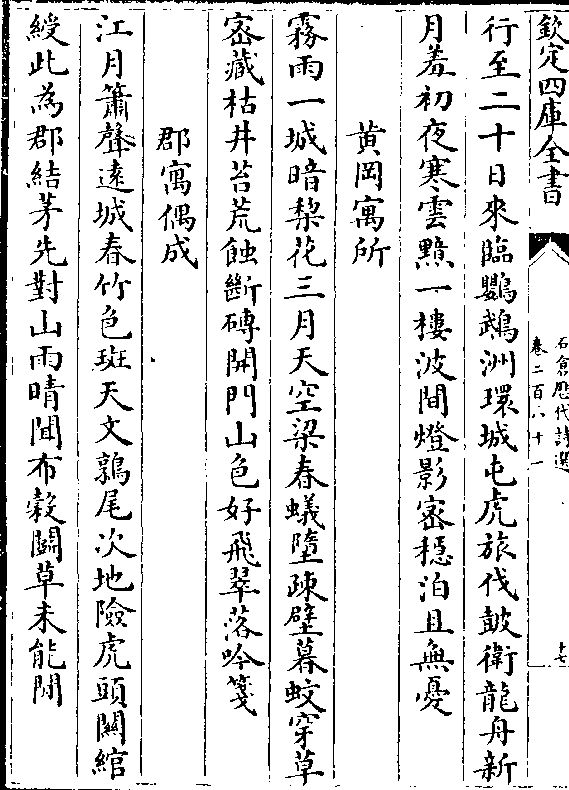 欽定四庫全書
石倉歴代詩選
卷二百八十一
十七
行至二十日來臨鸚鵡洲環城屯虎旅伐鼓衛龍舟新
月羞初夜寒雲黯一樓波間燈影密穩泊且無憂
黄岡寓所
霧雨一城暗梨花三月天空梁春蟻墮疎壁暮蚊穿草
密藏枯井苔荒蝕斷磚開門山色好飛翠落吟箋
郡寓偶成
江月簫聲逺城春竹色斑天文鶉尾次地險虎頭闗綰
綬此為郡結茅先對山雨晴聞布榖鬭草未能閒